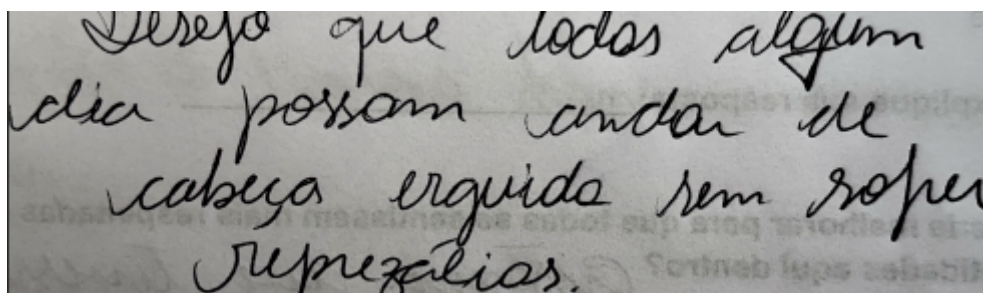 Desejo que todas algum
dia possam andar de
cabeça erguida sem sofrer
reprezálias.